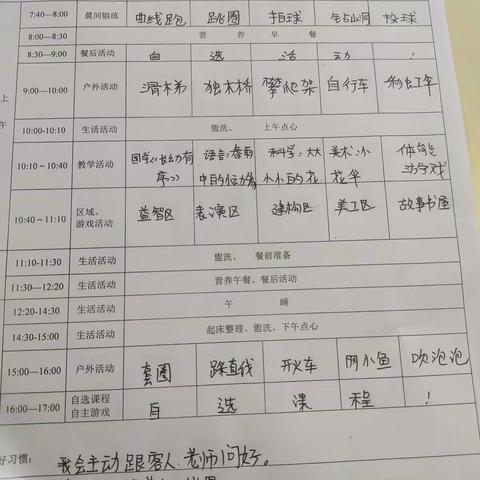 7:40—8:00 晨间锻炼 曲线跑 跳圈 拍球 钻山洞 投球
8:00—8:30 营 养 早 餐
8:30—9:00 餐后活动 自 选 活 动 !
上
午
9:00—10:00 户外活动 滑梯 独木桥 攀爬架 自行车
10:00-10:10 生活活动 盥洗、 上午点心
10:10~10:40 教学活动 国学《长幼有 语言:春雨 科学:大大 美术:小 体能
序》 小小的花 花伞 游戏
10:40~11:10 区域、 益智区 表演区 建构区 美工区 故事书屋
游戏活动
11:10-11:30 生活活动 盥洗、 餐前准备
11:30—12:20 生活活动 营养午餐、餐后活动
12:20-14:30 生活活动 午 睡
14:30-15:00 生活活动 起床整理、盥洗、下午点心
15:00—16:00 户外活动 套圈 踩直线 开火车 网小鱼 吹泡泡
16:00—17:00 自选课程 自 选 课 程 !
自主游戏
好习惯: 我会主动跟客人.老师问好。